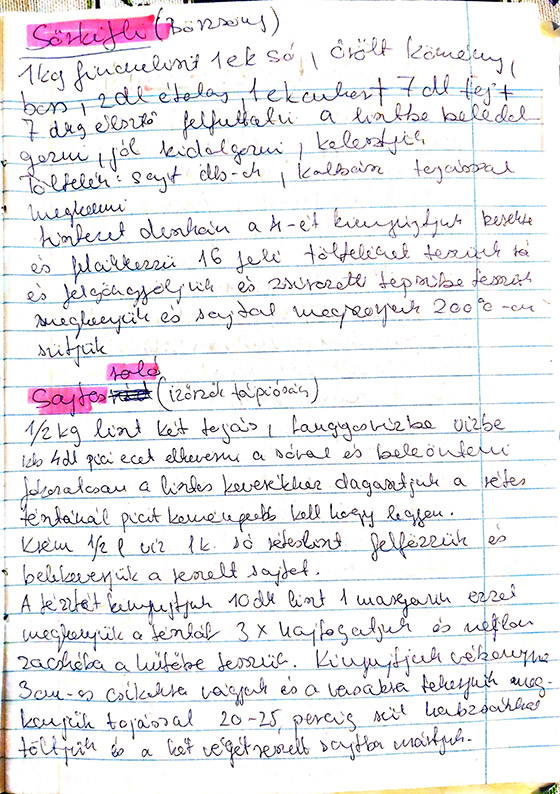 Sörkifli (Börzsöny)
1 kg finomliszt 1 ek só, őrölt kömény,
bors, 2 dl étolaj, 1 ek cukor + 7 dl tejet
7 dkg élesztő felfuttatni a lisztbe beledol
gozni, jól kidolgozni, kelesztjük
Töltelék: sajt db-ok, kolbász tojással
megkenni
Lisztezet deszkán a 4-ét kinyújtjuk kerekre
és felcikkezzü 16 felé tölteléket teszünk rá
és felgöngyöljük és zsírozott tepsibe tesszük
megkenjük és sajtal megszorjuk 200°C-on
sütjük
roló
Sajtos (ízőrzők tápióság)
1/2 kg liszt két tojás, langyosvízbe vízbe
kb 4 dl pici ecet elkeverni a sóval és beleönteni
fokozatosan a lisztes keverékhez dagasztjuk a rétes
tésztánál picit keményebb kell hogy legyen.
Krém 1/2 l víz 1 k. só rétesliszt felfőzzük és
belekeverjük a reszelt sajtot.
A tésztát kinyujtjuk 10 dk liszt 1 margarin ezzel
megkenjük a tésztát 3 x hajtogatjuk és nejlon
zacskóba a hűtőbe tesszük. Kinyujtjuk vékonyra
3 cm-es csíkokra vágjuk és a vasakra tekerjük meg-
kenjük tojással 20-25 percig süt habzsákkal
töltjük és a két végét reszelt sajtba mártjuk.